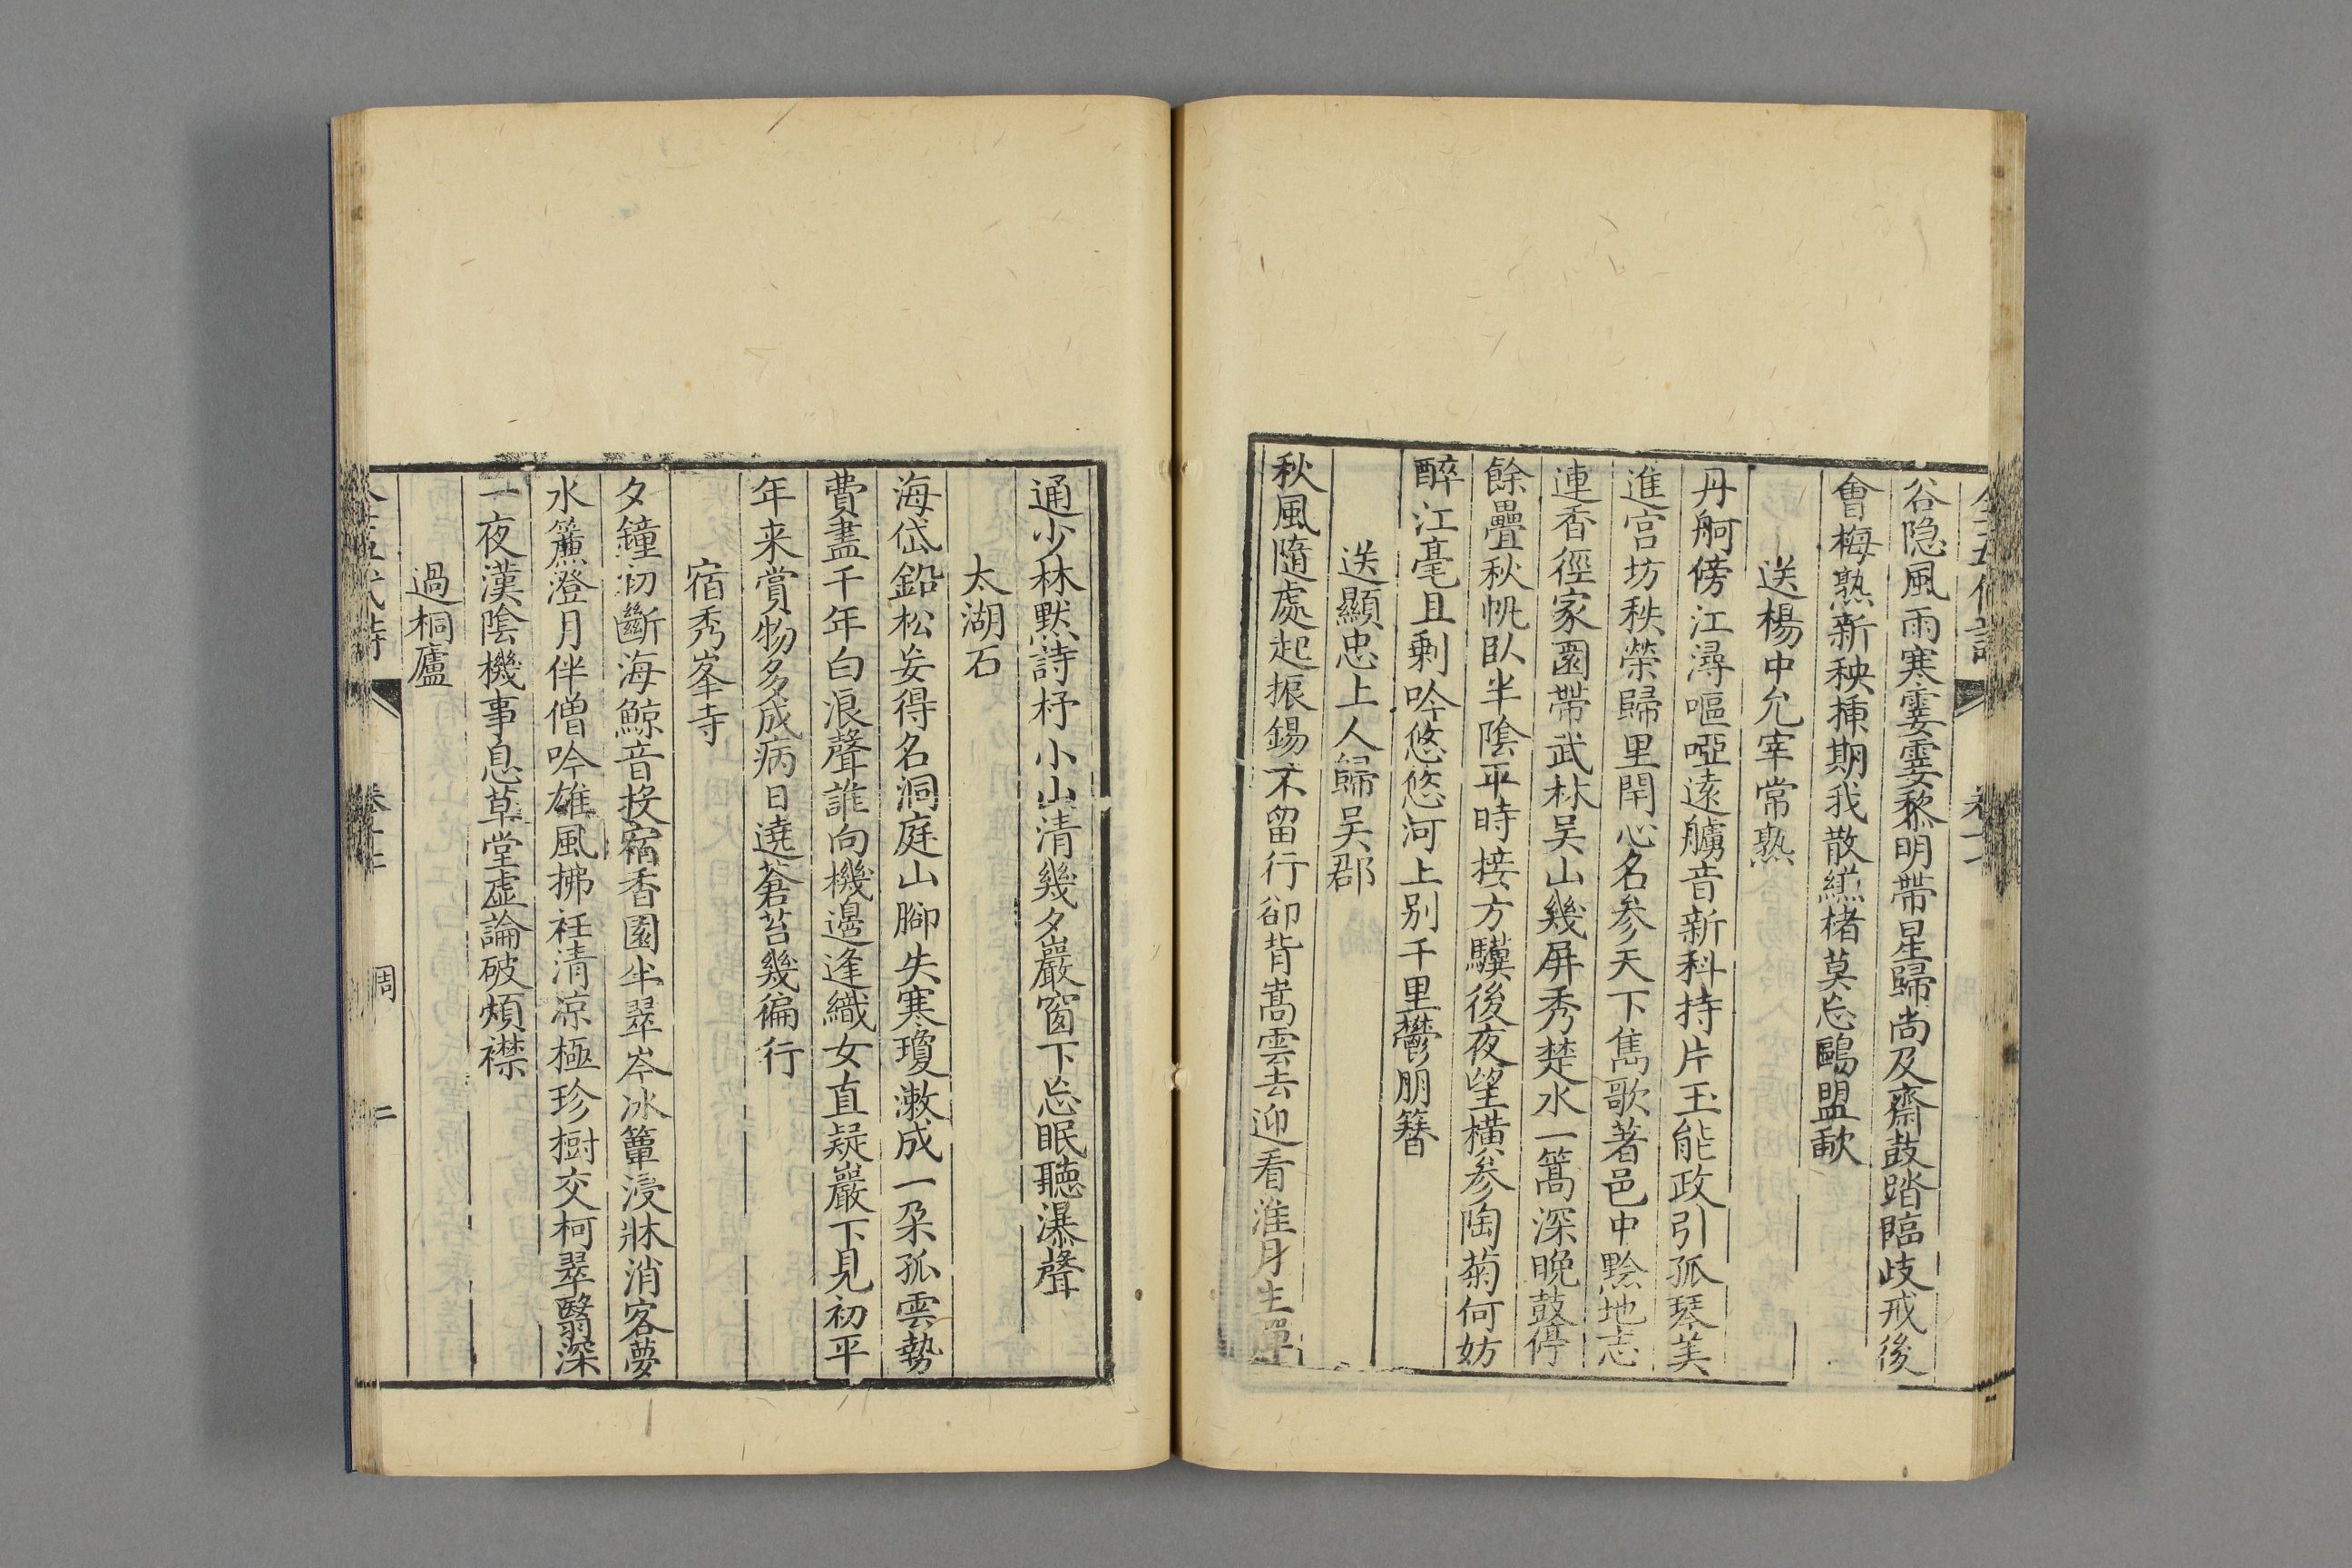 谷隐風雨寒霎霎黎明帶星歸尚及齋鼓踏臨歧戒後
會梅熟新秧揷期我散繎楮莫忘鷗盟歃
送楊中允宰常熟
丹舸傍江潯嘔啞遠艣音新科持片玉能政引孤琴美
進宫坊秩榮歸里閈心名参天下雋歌著邑中黔地志
連香徑家園帶武林吴山幾屏秀楚水一篙深晚鼓停
餘疊秋帆臥半陰平時接方驥後夜望横参陶菊何妨
醉江毫且剩吟悠悠河上别千里鬱朋簪
送顯忠上人歸吴郡
秋風隨處起振錫不留行卻背嵩雲去迎看淮月生
通少林黙詩杼小山清幾夕巖窗下忘眠聽瀑聲
太湖石
海岱鉛松妄得名洞庭山腳失寒瓊漱成一朶孤雲勢
費盡千年白浪聲誰向機邊逢織女直疑巖下見初平
年来賞物多成病日遶蒼苔幾徧行
宿秀峯寺
夕鐘初斷海鯨音投宿香園半翠岑冰簟浸牀消客夢
水簾澄月伴僧吟雄風拂衽清凉極珍樹交柯翠翳深
一夜漢陰機事息草堂虛論破煩襟
過桐廬
周
二